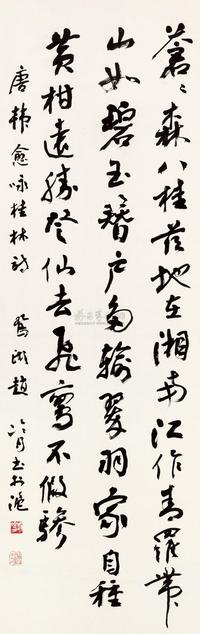 蒼々森八桂茲地在湘南江作青羅帶
山如碧玉簪户多輸翠羽家自種
黄柑遠勝登仙去飛鸞不假驂
唐韓愈咏桂林詩 鴛湖趙
冷月書於滬